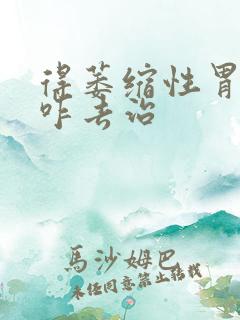 得萎缩性胃
咋去治
馬沙姆巴
未经同意禁止转载